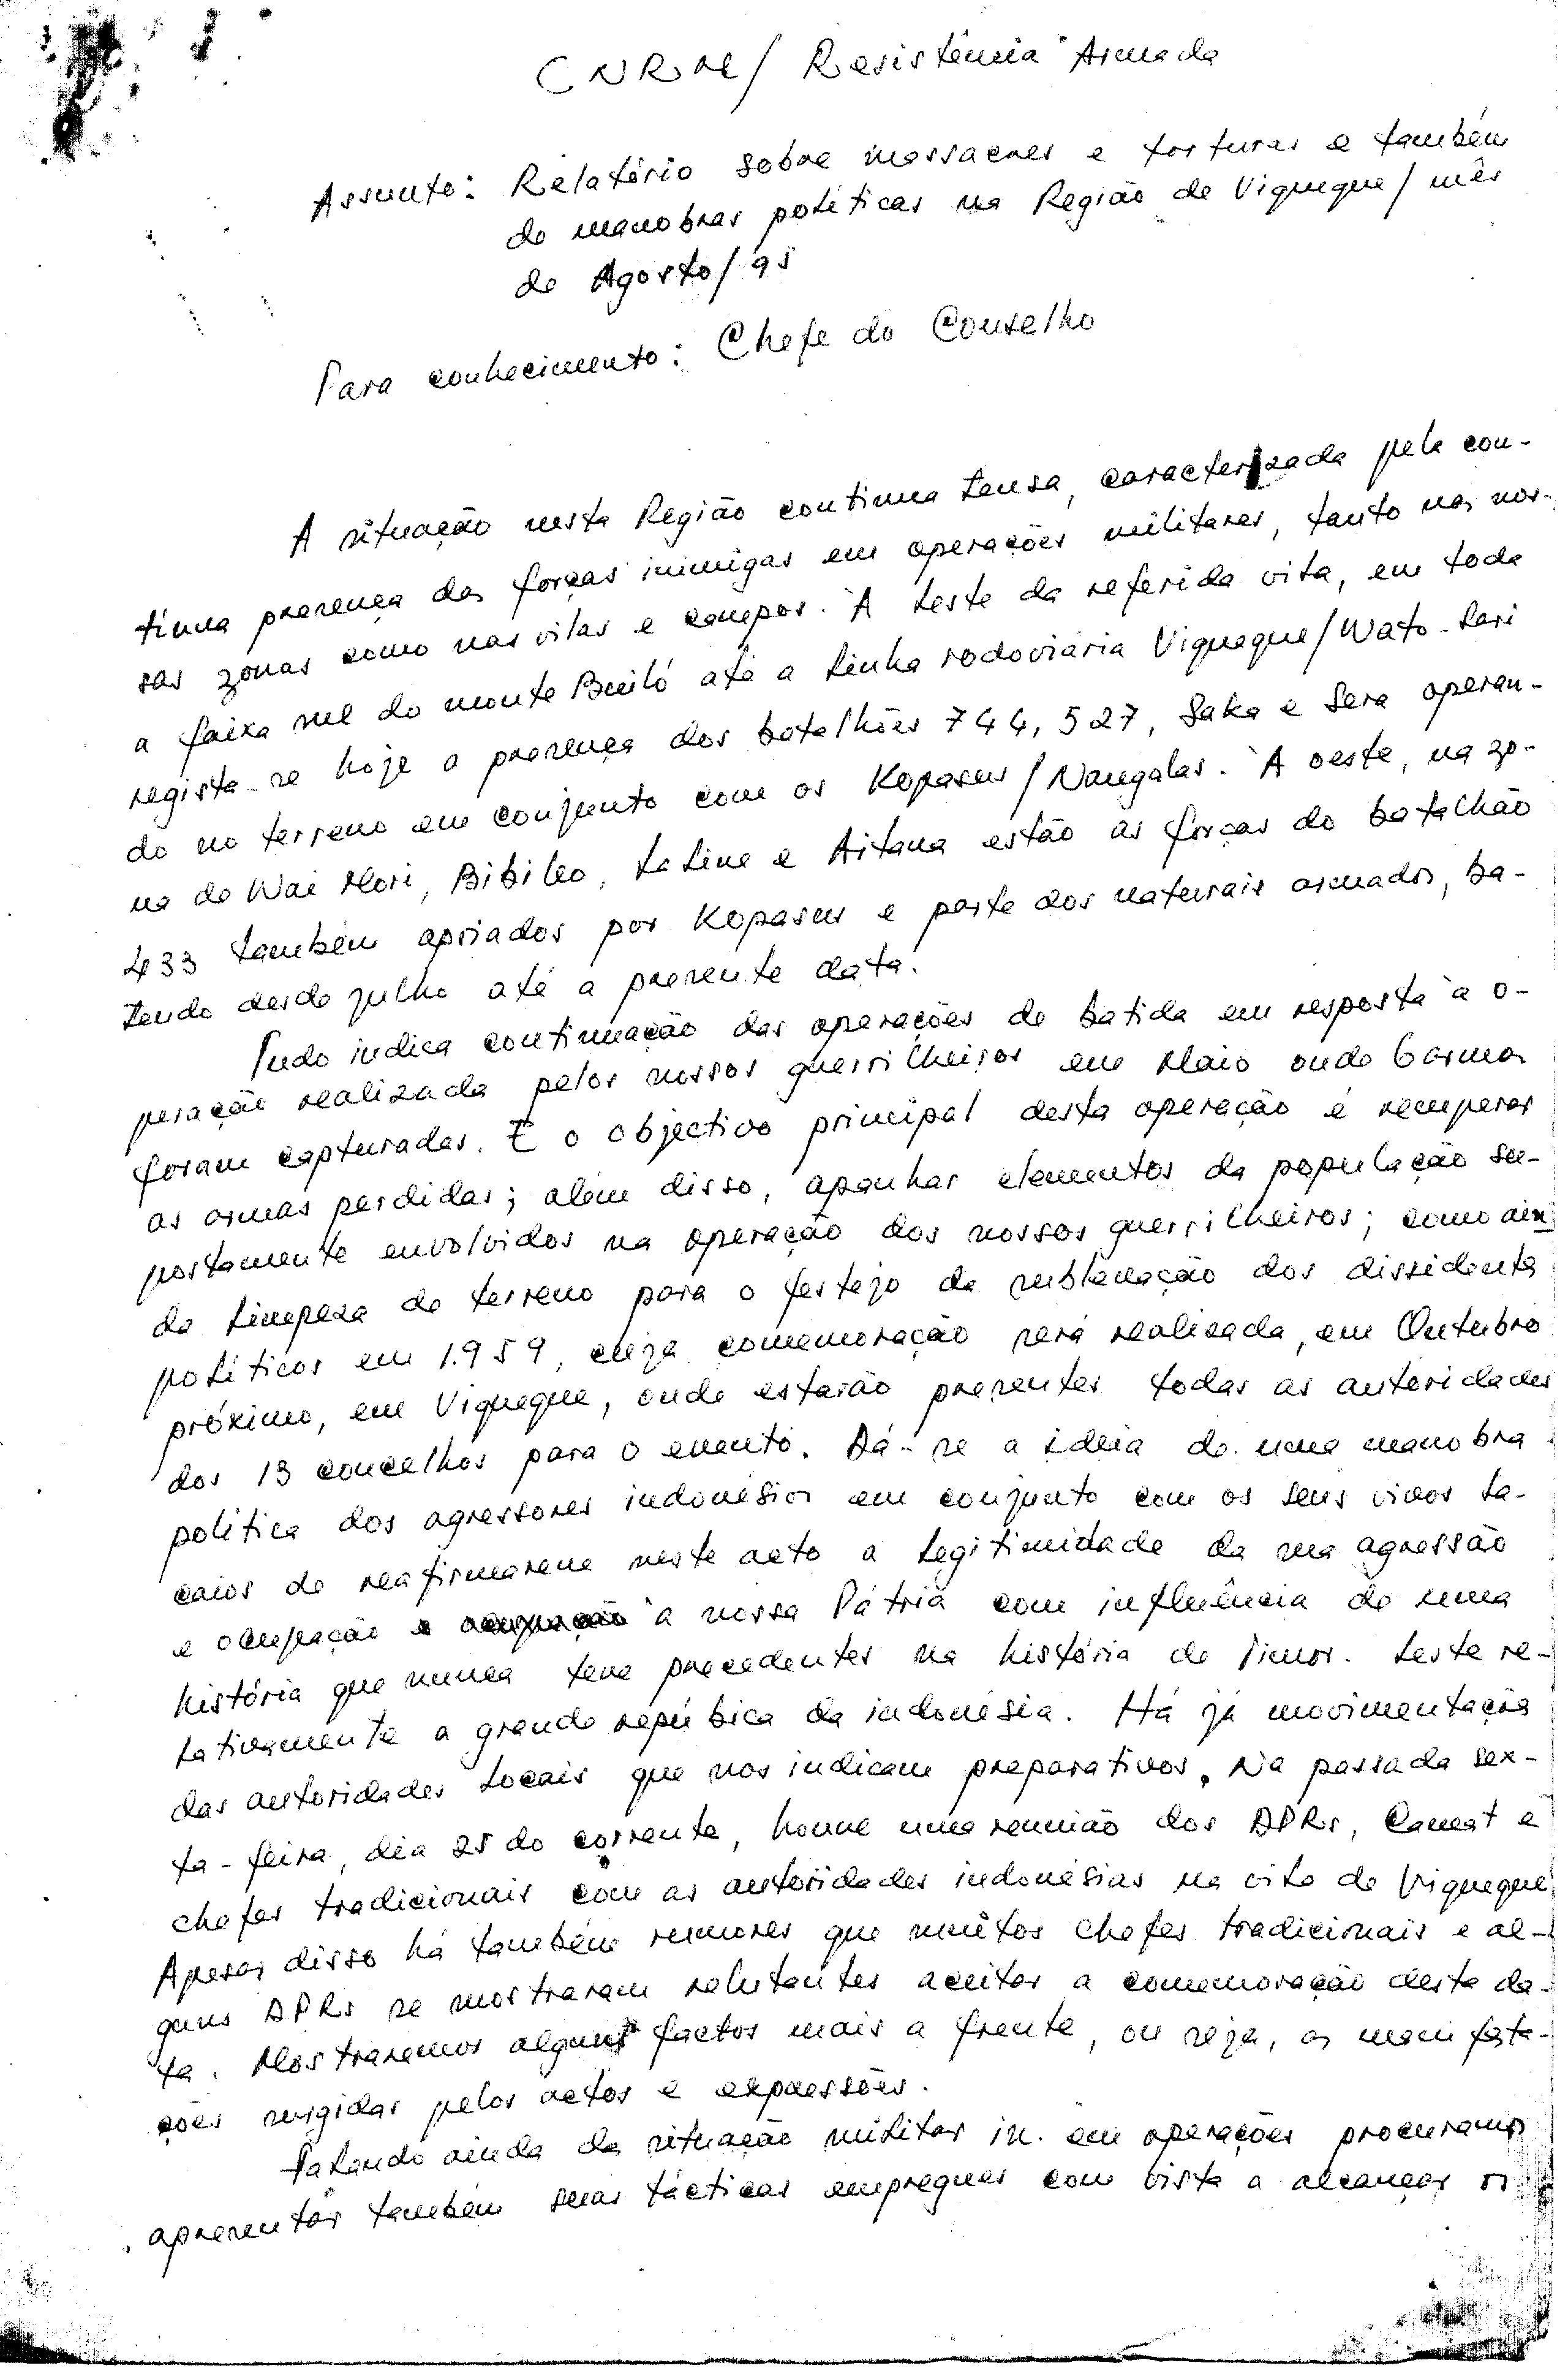 CNRM/ Resistência Armada
Assunto: Relatório sobre massacres e torturas e também
de manobras políticas na Região de Viqueque/ mês
de Agosto/95
Para conhecimento: Chefe do Conselho
A situação nesta Região continua tensa, caracterizada pela con-
tínua presença das forças inimigas em operações militares, tanto nas nos-
sas zonas como nas vilas e campos. À leste da referida vila, em toda
a faixa sul do monte Builó até a linha rodoviária Viqueque/Wato-Lari
regista-se hoje a presença dos batalhões 744, 527, Saka e Sera operan-
do no terreno em conjunto com os Kopasus/Nangalas. À oeste, na zo-
na de Wai Mori, Bibileo, Laline e Aitana estão as forças do batalhão
433 também apoiados por Kopasus e parte dos naturais armados, ba-
tendo desde julho até a presente data.
Tudo indica continuação das operações de batida em resposta à o-
peração realizada pelos nossos guerrilheiros em Maio onde 6 armas
foram capturadas. E o objectivo principal desta operação é recuperar
as armas perdidas; além disso, apanhar elementos da população su-
postamente envolvidos na operação dos nossos guerrilheiros; como ain
da limpeza do terreno para o festejo da sublevação dos dissidentes
políticos em 1.959, cuja comemoração será realizada, em Outubro
próximo, em Viqueque, onde estarão presentes todas as autoridades
dos 13 concelhos para o evento. Dá-se a ideia de uma manobra
política dos agressores indonésios em conjunto com os seus vivos la-
caios de reafirmarem neste acto a legitimidade da sua agressão
e ocupação à nossa Pátria com influência de uma
história que nunca teve precedentes na história de Timor-Leste re-
lativamente a grande repúbica da indonésia. Há já movimentações
das autoridades locais que nos indicam preparativos. Na passada sex-
ta-feira, dia 25 do corrente, houve uma reunião dos DPRs, Camat e
chefes tradicionais com as autoridades indonésias na vila de Viqueque
Apesar disso há também rumores que muitos chefes tradicionais e al-
guns DPRs se mostraram relutantes aceitar a comemoração desta da-
ta. Mostraremos alguns factos mais a frente, ou seja, as manifesta-
ções surgidas pelos actos e expressões.
Falando ainda da situação militar in. em operações procuramos
apresentar também suas tácticas empregues com vista a alcançar os